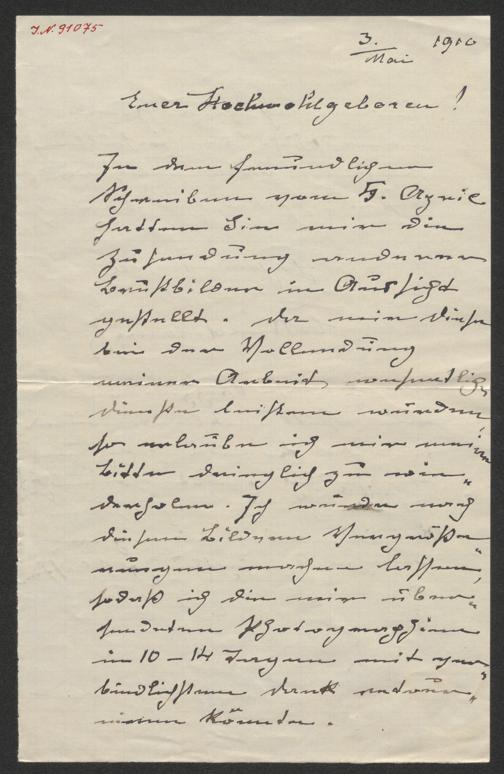 J.N. 91075
3. Mai 1910
Euer Hochwohlgeboren!
In dem freundlichen
Schreiben vom 5. April
hatten Sie mir die
Zusendung anderer
Brustbilder in Aussicht
gestellt. Da mir diese
bei der Vollendung
meiner Arbeit wesentliche
Dienste leisten würden,
so erlaube ich mir meine
Bitte dringlich zu wie„
derholen. Ich würde nach
diesen Bildern Vergröße„
rungen machen lassen,
sodaß ich die mir über„
sendeten Photographien
in 10 – 14 Tagen mit ver„
bindlichstem Dank retour„
nieren könnte.